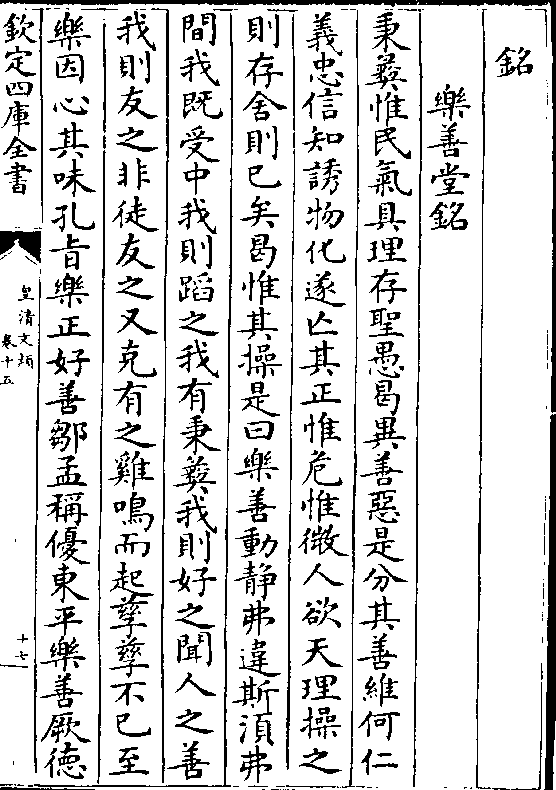 銘
樂善堂銘
秉彞惟民氣具理存聖愚曷異善惡是分其善維何仁
義忠信知誘物化遂亾其正惟危惟微人欲天理操之
則存舍則已矣曷惟其操是曰樂善動静弗違斯湏弗
間我既受中我則蹈之我有秉彞我則好之聞人之善
我則友之非徒友之又克有之雞鳴而起孳孳不已至
樂因心其味孔旨樂正好善鄒孟稱優東平樂善厥德
欽定四庫全書
皇清文頴
卷十五
十七